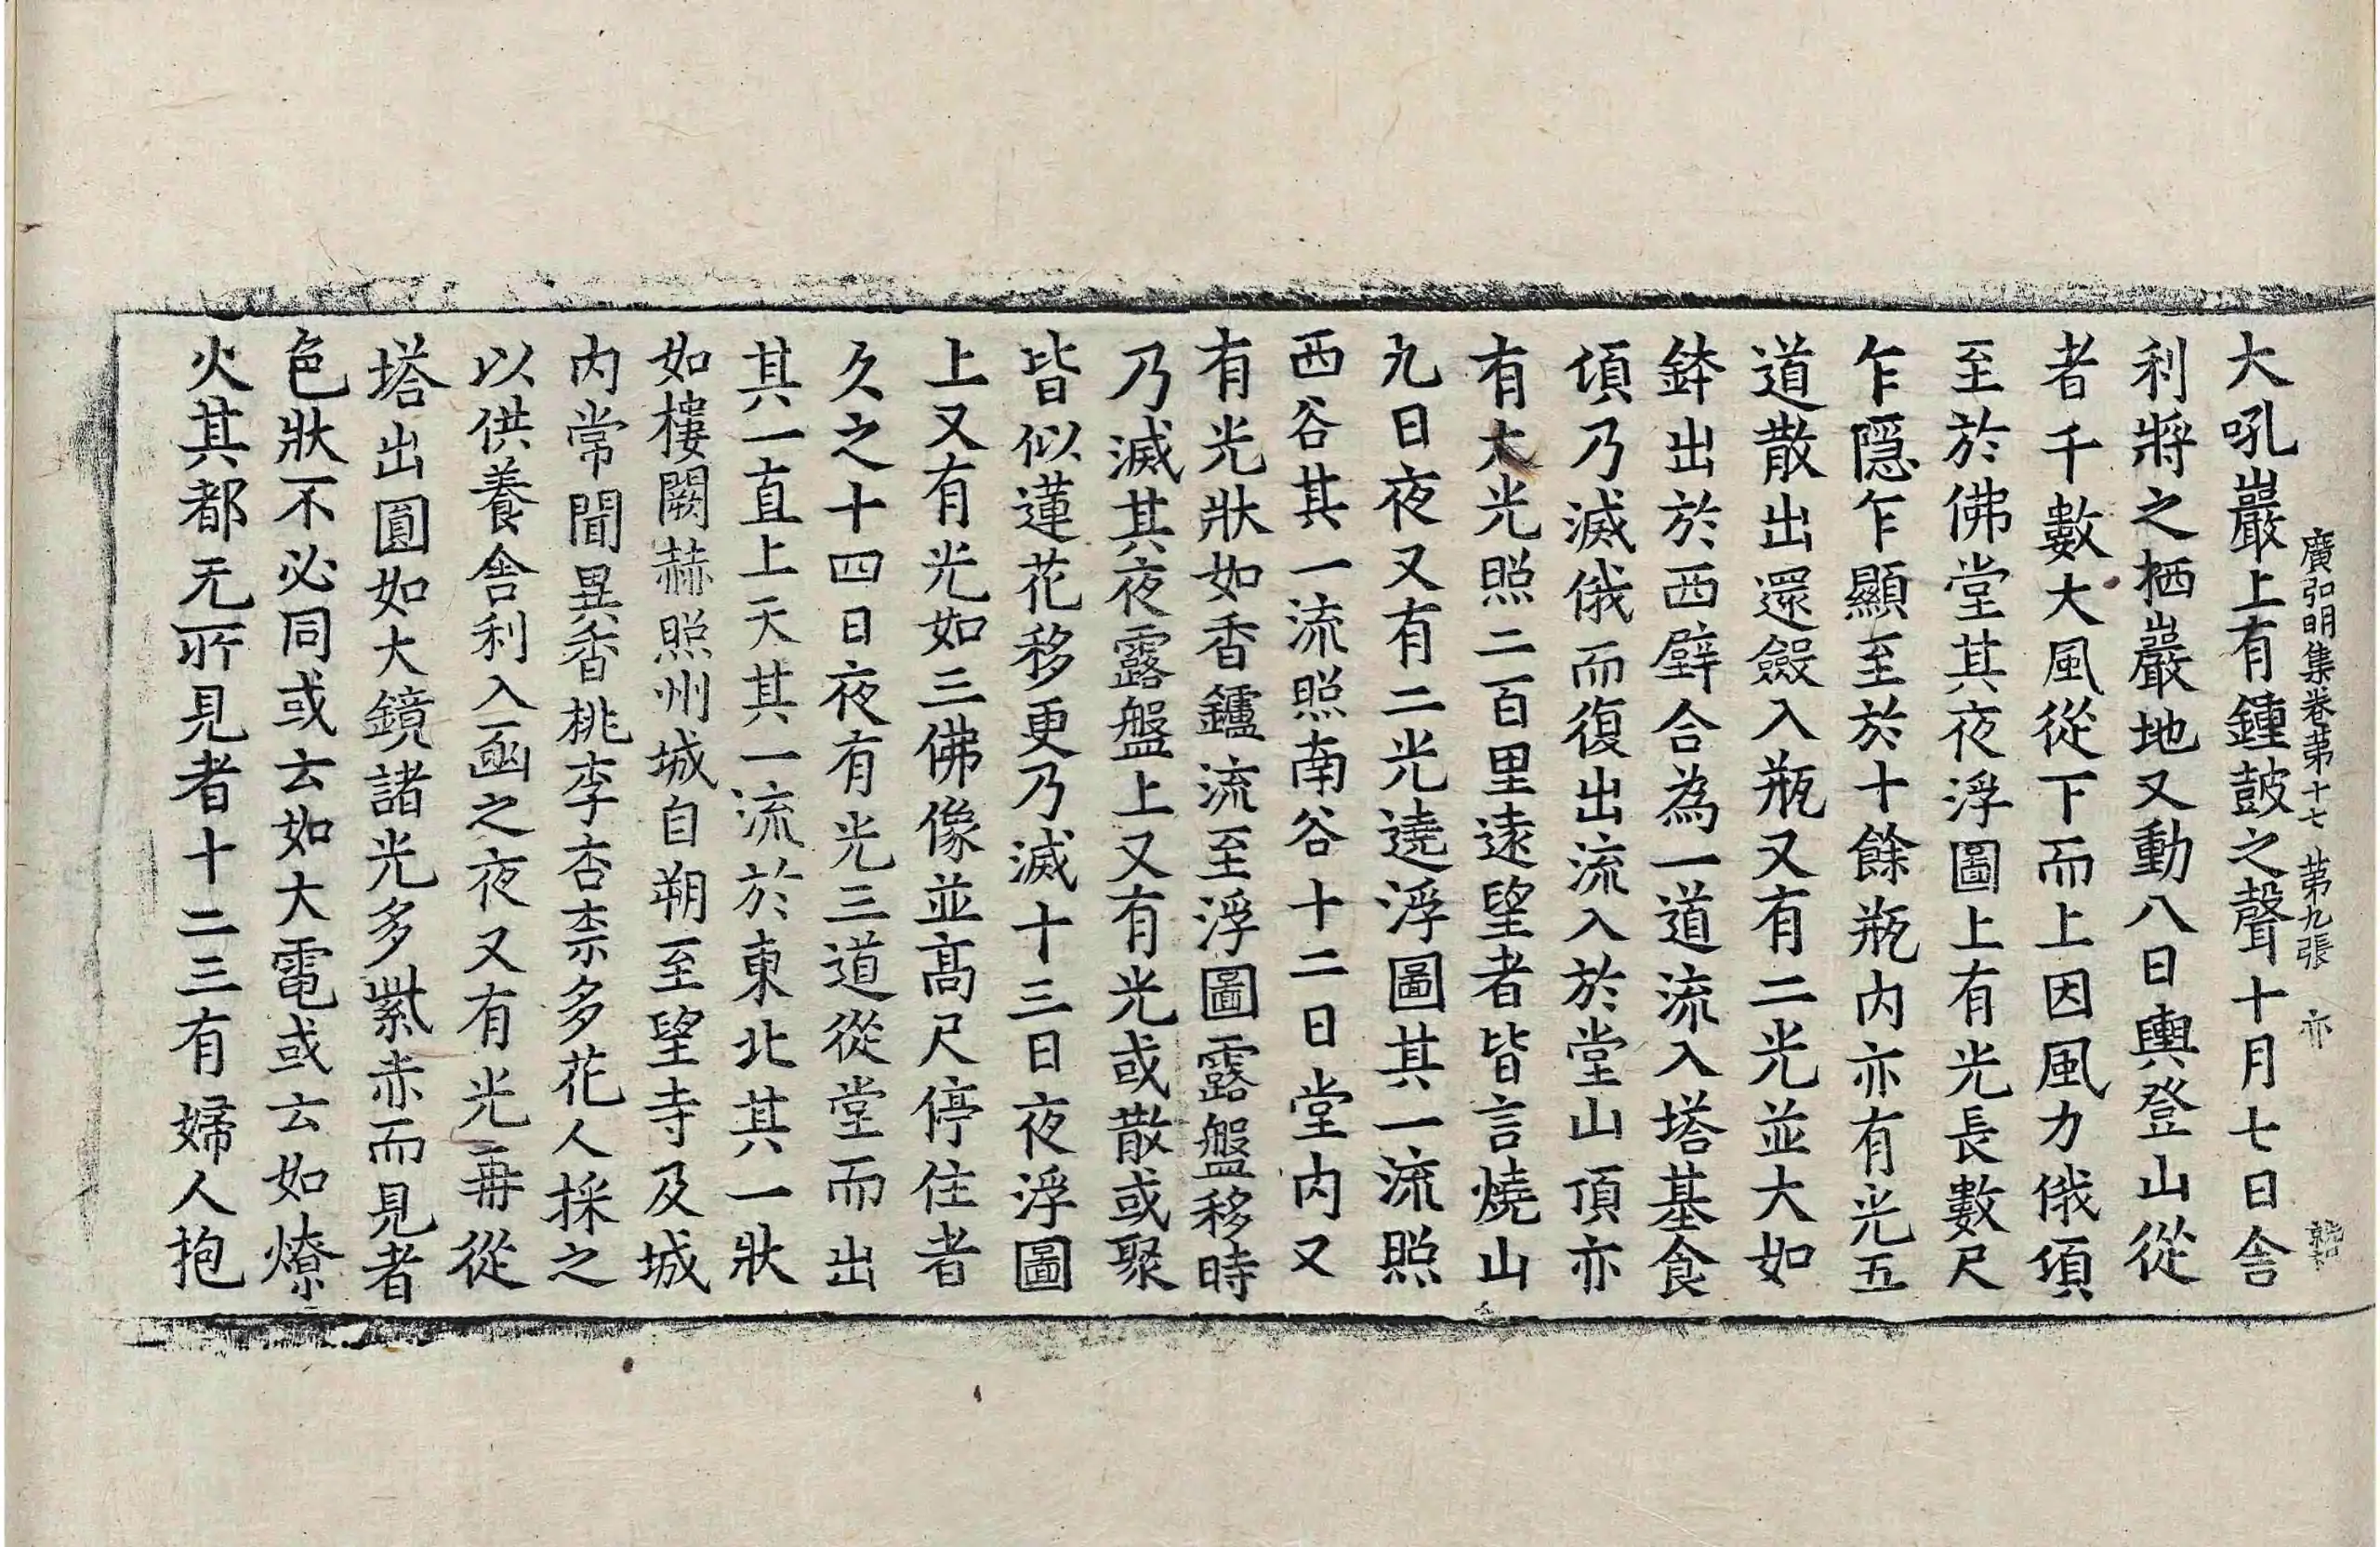 大吼巖上有鍾鼓之聲十月七日舎
廣弘明集卷苐十七 苐九張 亦
利將之栖巖地又動八日輿登山從
者千數大風從下而上因風力俄頃
至於佛堂其夜浮圖上有光長數尺
乍隱乍顯至於十餘瓶内亦有光五
道散出還斂入瓶又有二光並大如
鉢出於西壁合為一道流入塔基食
頃乃滅俄而復出流入於堂山頂亦
有大光照二百里逺望者皆言燒山
九日夜又有二光遶浮圖其一流照
西谷其一流照南谷十二日堂内又
有光狀如香鑪流至浮圖露盤移時
乃滅其夜露盤上又有光或散或聚
皆似蓮花移更乃滅十三日夜浮圖
上又有光如三佛像並髙尺停住者
久之十四日夜有光三道從堂而出
其一直上天其一流於東北其一狀
如樓闕赫照州城自朔至望寺及城
内常聞異香桃李杏柰多花人採之
以供養舎利入函之夜又有光再從
塔出圓如大鏡諸光多紫赤而見者
色狀不必同或云如大電或云如燎
火其都无所見者十二三有婦人抱